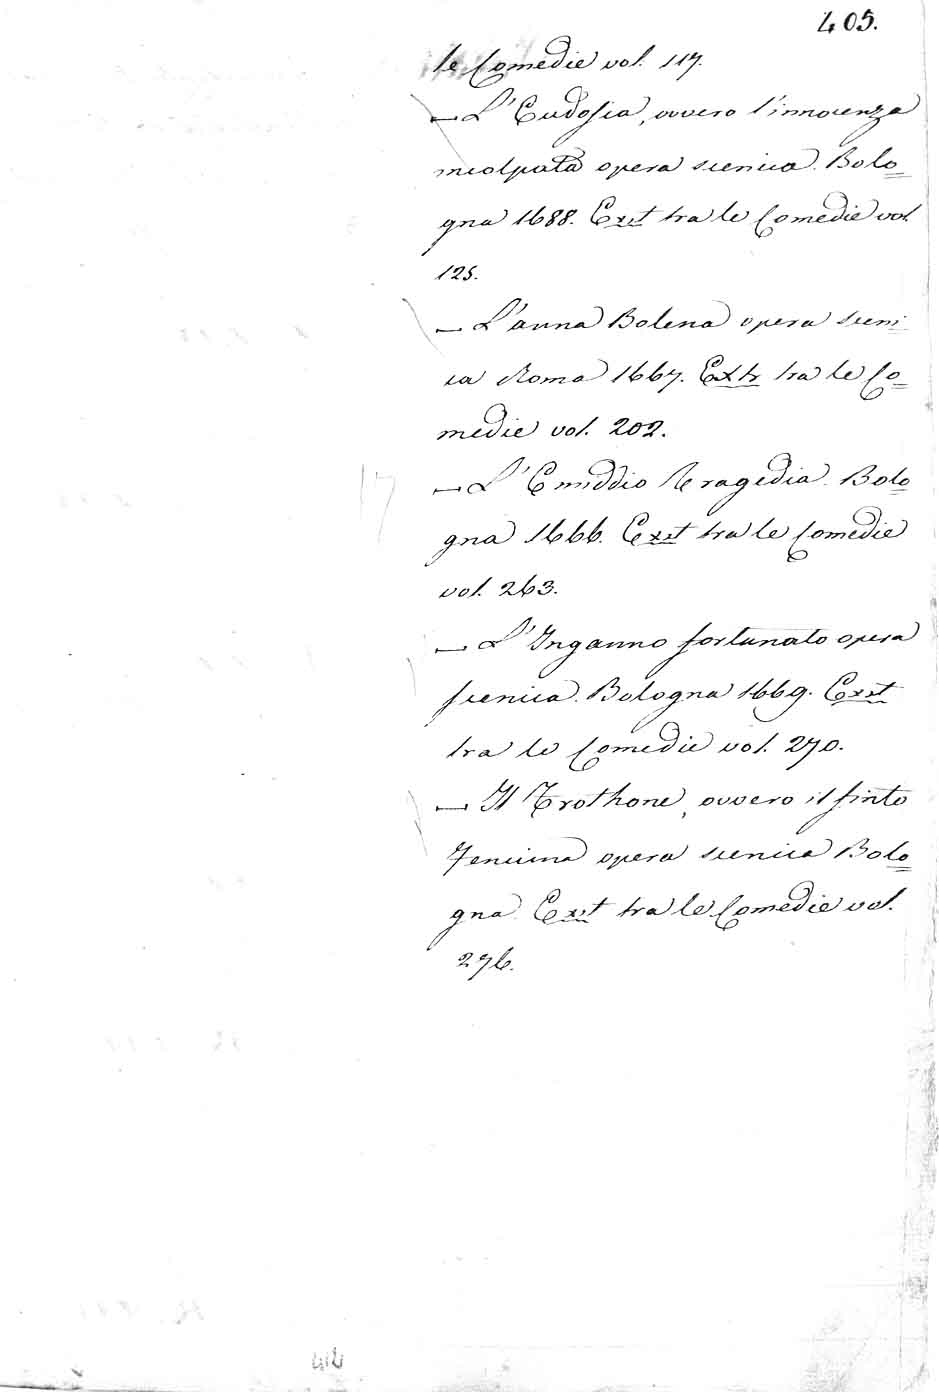 405.
le Comedie vol. 117.
— L'Eudosia, ovvero l'innocenza
incolpata opera scenica. Bolo=
gna 1688. Exst tra le Comedie vol.
125.
— L'anna Bolena opera sceni
ca Roma 1667. Extr tra le Co=
medie vol. 202.
— L'Emiddio Tragedia. Bolo=
gna 1666. Exst tra le Comedie
vol. 263.
— L'Inganno fortunato opera
scenica. Bologna 1669. Exst
tra le Comedie vol. 270.
— Il Trothone, ovvero il finto
Femina opera scenica Bolo=
gna. Exst tra le Comedie vol.
276.